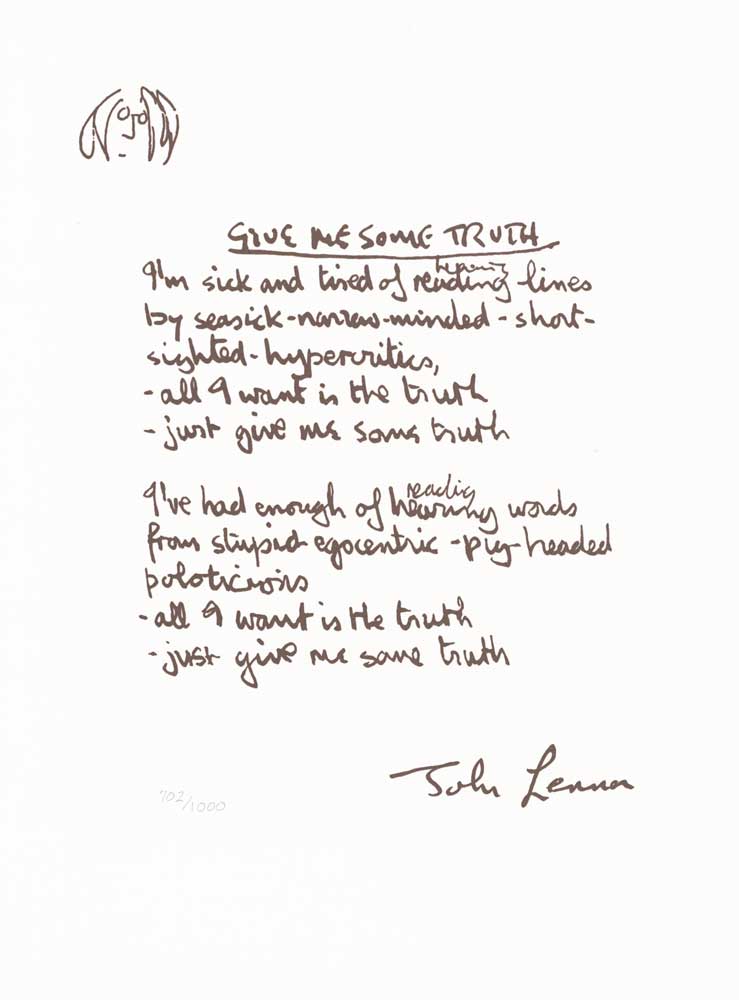 GIVE ME SOME TRUTH
hearing
I'm sick and tired of reading lines
by seasick-narrow-minded-short-
sighted-hypercritics,
-all I want is the truth
-just give me some truth
readig
I've had enough of hearing words
from stupid-egocentric-pig-headed
poloticians
-all I want is the truth
-just give me some truth
John Lennon
702/1000